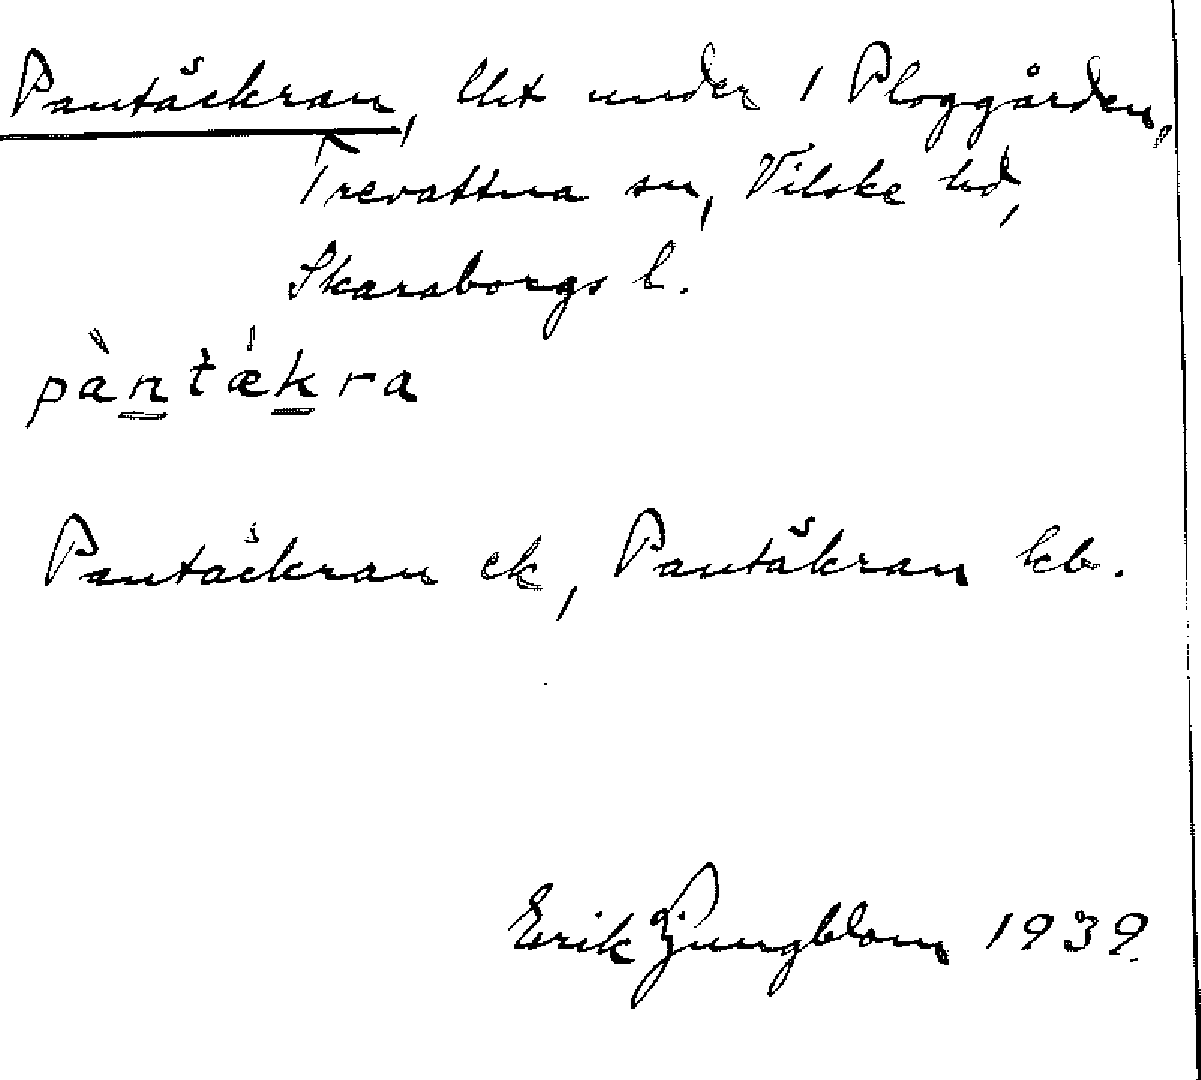 Pantäckran, lht under 1 Ploggården,
Trevattna sn, Vilske hd,
Skaraborgs l.
pàntǽkra
Pantäckran ek, Pantäkran kb.
Erik Ljungblom 1939.